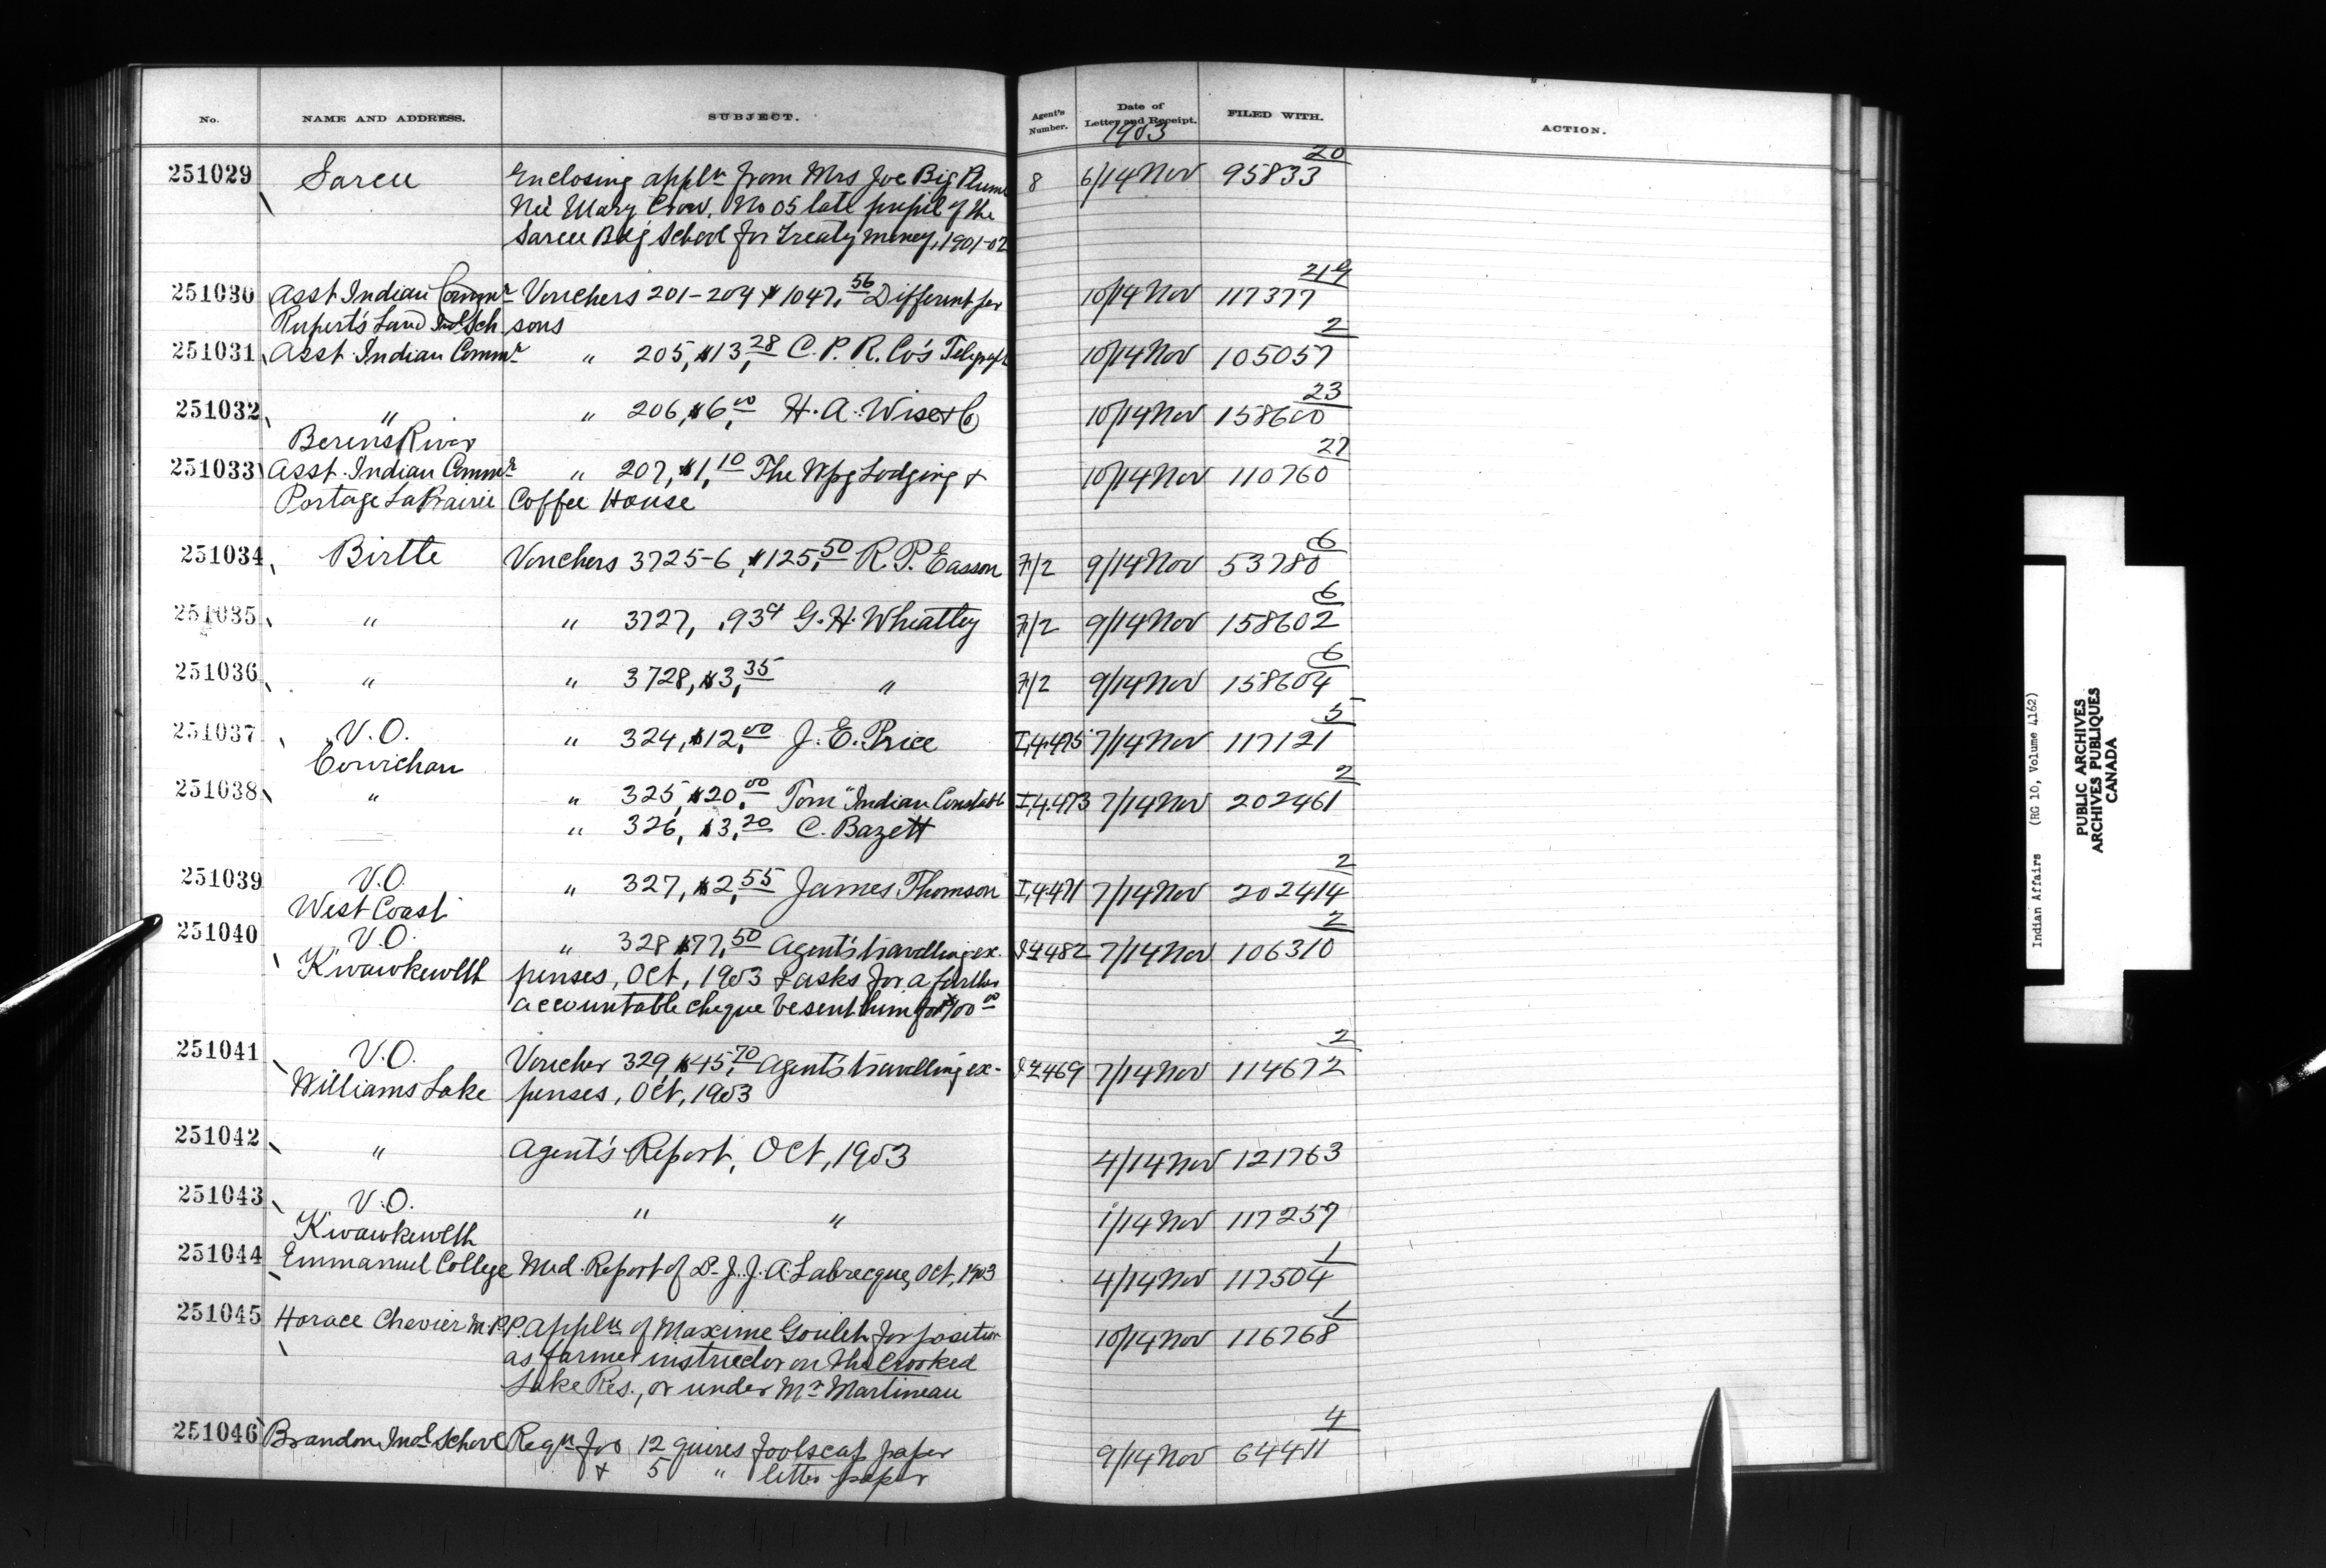 No. NAME AND ADDRESS. SUBJECT. Agent's Number. Date of Letter and Receipt. FILED WITH. ACTION.
1903
20
251029 Sarcee Enclosing appln from Mrs Joe Big Plume 8 6/14 Nov 95833
Neé Mary Crow, No 05 late pupil of the
Sarcee Bdg School for Treaty money, 1901-02
219
251030 Asst Indian Commr Vouchers 201-204 $1047.56 Different per 10/14 Nov 117377
Rupert's Land Indl Sch sons
2
251031 Asst Indian Commr " 205, $13.28 C. P. R. Co's Telegraph 10/14 Nov 105057
23
251032 " " 206, $6.00 H. A. Wise & Co 10/14 Nov 158600
Berens River
27
251033 Asst. Indian Commr " 207, $1.10 The Wpg Lodging & 10/14 Nov 110760
Portage La Prairie Coffee House
6
251034 Birtle Vouchers 3725-6, $125.50 R. P. Easson F/2 9/14 Nov 53780
6
251035 " " 3727, .93¢ G. H. Wheatley F/2 9/14 Nov 158602
6
251036 " " 3728, $3.35 " F/2 9/14 Nov 158604
5
251037 V.O. " 324, $12.00 J. E. Price I,4.475 7/14 Nov 117121
Cowichan
2
251038 " " 325, $20.00 Tom "Indian Constable I,4.473 7/14 Nov 202461
" 326, $3.20 C. Bazett
2
251039 V.O. " 327, $2.55 James Thomson I,4.471 7/14 Nov 202414
West Coast
2
251040 V.O. " 328 $77.50 Agent's travelling ex- 482 7/14 Nov 106310
Kwawkewlth penses, Oct, 1903 & asks for a further
accountable cheque be sent him for $100.00
2
251041 V.O. Voucher 329, $45.70 Agent's travelling ex- 469 7/14 Nov 114672
Williams Lake penses, Oct, 1903
251042 " Agent's Report, Oct, 1903 4/14 Nov 121763
251043 V.O. " " 1/14 Nov 117257
Kwawkewlth
1
251044 Emmanuel College Med. Report of Dr J. J. A. Labrecque, Oct, 1903 4/14 Nov 117504
1
251045 Horace Chevier M.P.P. Appln of Maxime Goulet for position 10/14 Nov 116768
as farmer instructor on the Crooked
Lake Res., or under Mr Martineau
4
251046 Brandon Indl School Reqn for 12 quires foolscap paper 9/14 Nov 64411
& 5 " letter paper
Indian Affairs (RG 10, Volume 4162)
PUBLIC ARCHIVES
ARCHIVES PUBLIQUES
CANADA